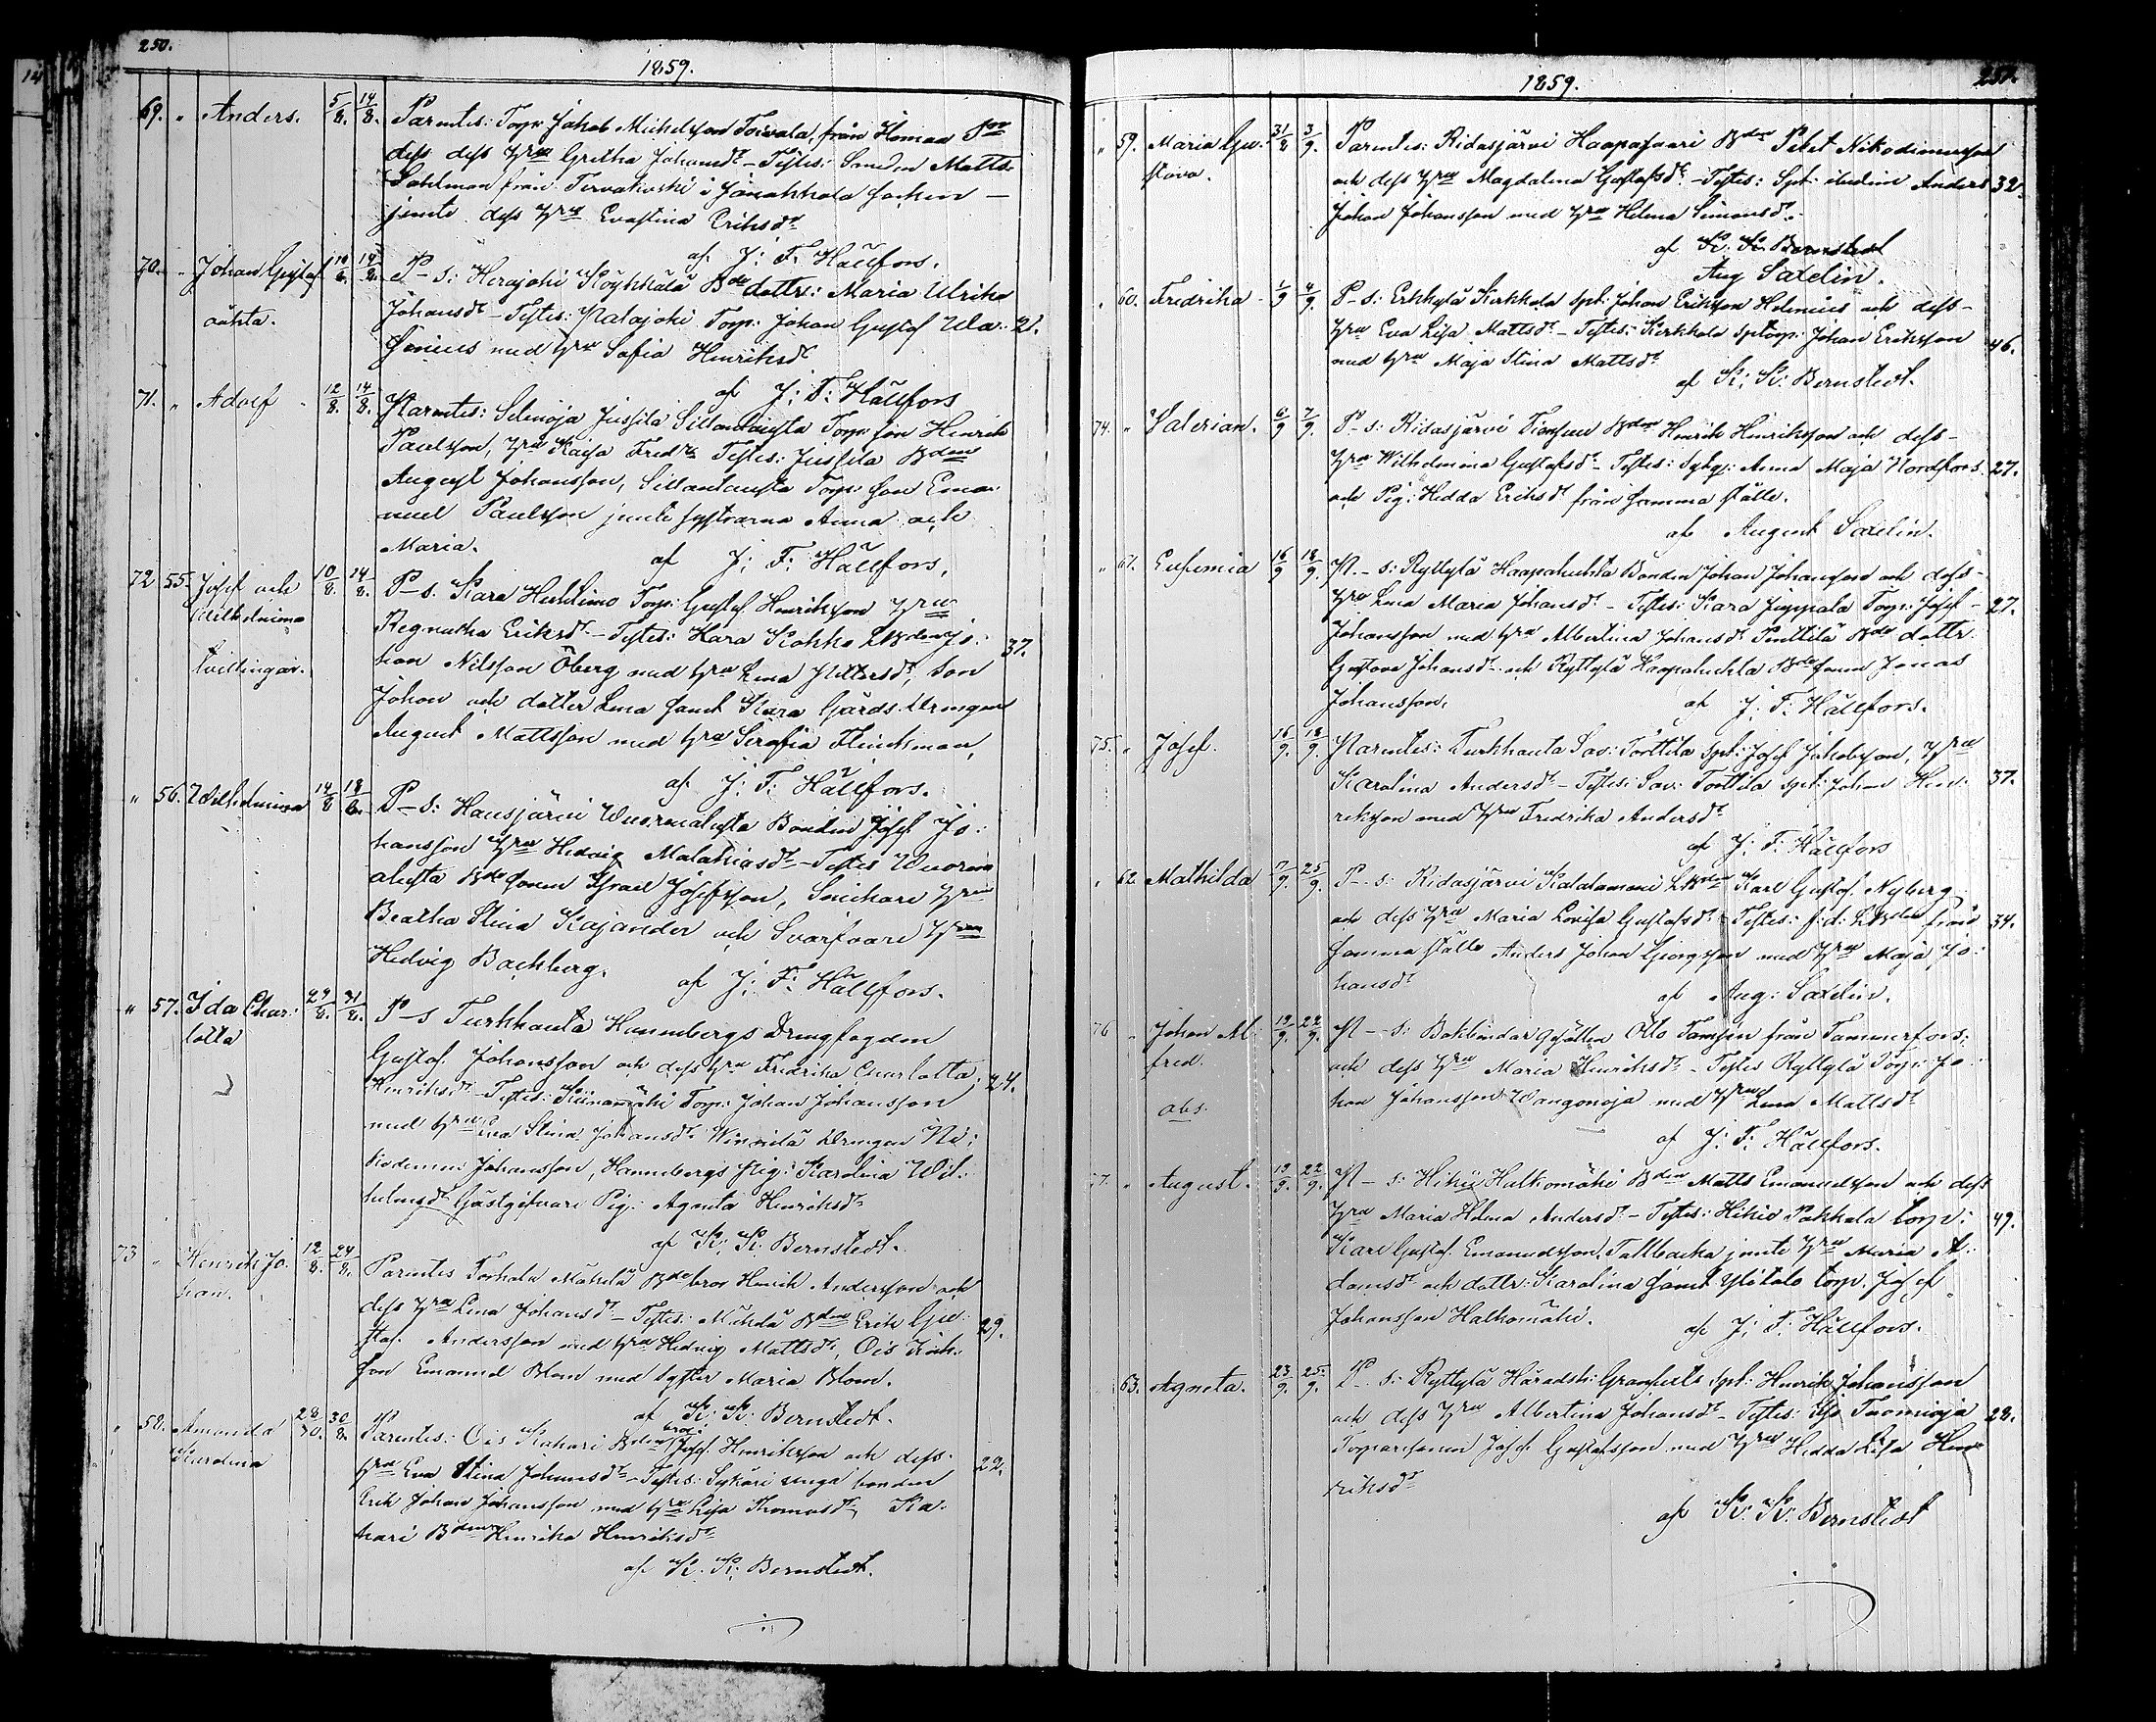 250.
1859.
69. " Anders. 5/8. 14/8. Parentes: Torp: Jakob Michelsson Toivala, från Hemaa
dess Hru Gretha Johansdr - Testes: Smeden Matts
Dahlman från Tervakoski i Janakkala socken
jemte dess Hru Evastina Eriksdr
af J: F: Hällfors.
70. " Johan Gustaf 14/8.
oäkta.
P-s: Herajoki Köykkälä Bde dottr: Maria Ulrika
Johansdr - Testes: Palajoki Torp: Johan Gustaf Wa- 21.
senius med Hru Sofia Henriksdr
af J: F: Hällfors
71. " Adolf 12/8. 14/8. Parentes: Selinoja Jussila Sillanlausta Torp: son Henrik
Paulsson, Hru Kaisa Fredr: Testes: Jussila Bden
August Johansson, Sillanlausta Torp: son Ema-
nuel Paulsson jemte systrarna Anna och
Maria.
af J: F: Hällfors.
72 55. Josef och 10/8. 14/8.
Wilhelmina
tvillingar.
P-s. Kara Huhtimo Torp: Gustaf Henriksson Hru
Regnatha Eriksdr - Testes: Kara Kokko LBden Jo-
han Nilsson Öberg med Hru Lena Pettersdr, son 37.
Johan och dotter Lena samt Kara Gårds Drengen
August Mattsson med Hru Serafia Flinckman,
af J: F: Hällfors.
" 56. Wilhelmina 14/8 18/8.
P-s: Hausjärvi Wuorenalusta Bonden Josef Jo-
hansson Hru Hedvig Malakiasdr - Testes Wuoren
alusta Bde sonen Israel Josefsson, Snickare Hru
Beatha Stina Kajander och Svarfvare Hru
Hedvig Backberg.
af J: F: Hällfors.
" 57. Ida Char- 29/8. 31/8.
lotta
P-s Turkhauta Hannebergs Drengfogden
Gustaf Johansson och dess Hru Fredrika Charlotta 24.
Henriksdr - Testes: Torp: Johan Johansson
med Hru Eva Stina Johansdr Drengen Ni-
kodemus Johansson, Hannebergs Pig: Karolina Wil-
helmsdr Gästgifvare Pig: Agneta Henriksdr
af K: K: Bernstedt.
73 " Henrik Jo- 12/8. 24/8.
han.
Parentes Torhola Mäkelä Bde bror Henrik Andersson och
dess Hru Lena Johansdr - Testes: Mäkelä Bden Erik Gu- 29.
staf Andersson med Hru Hedvig Mattsdr, Ois
son Emanuel Blom med syster Maria Blom.
af K: K: Bernstedt.
" 58. Amanda 30/8.
Karolina
Parentes: Ois Kahari Bden bror Josef Henriksson och dess
Hru Eva Stina Johansdr - Testes: Sykäri unga bonden 22.
Erik Johan Johansson med Hru Lisa Thomasdr, Ka-
hari Bden Henrika Henriksdr
af K: K: Bernstedt.
251.
1859.
" 59. Maria Gu- 31/8 3/9.
stava.
Parentes: Ridasjärvi Haapasaari Bden Petet Nikodemusson
och dess Hru Magdalena Gustafsdr - Testes: Spt: ibidem Anders 32.
Johan Johansson med Hru Helena Simonsdr
af K: K: Bernstedt
Aug Saxelin.
" 60. Fredrika 1/9 4/9. P-s: Erkkylä Kirkkola Spt: Johan Eriksson Helenius och dess
Hru Eva Lisa Mattsdr - Testes: Kirkkola Sptorp: Johan Eriksson 46.
med Hru Maja Stina Mattsdr
af K: K: Bernstedt.
74. " Valerian. 6/9 7/9. P-s: Ridasjärvi Bden Henrik Henriksson och dess
Hru Wilhelmina Gustafsdr - Testes: Anna Maja Nordfors 27.
och Pig: Hedda Eriksdr från samma ställe.
af August Saxelin.
" 61. Eufemia 16/9 18/9. P-s: Ryttylä Haapahuhta Bonden Johan Johansson och dess
Hru Lena Maria Johansdr - Testes: Kara Juppala Torp: Josef 27.
Johansson med Hru Albertina Johansdr Penttilä Bde dottr.
Gustava Johansdr och Ryttylä Haapahuhta Bde sonen Jonas
Johansson.
af J: F: Hällfors.
75. " Josef. 16/9. 18/9. Parentes: Turkhauta Sav: Torttila Spt: Josef Jakobsson, Hru
Karolina Andersdr - Testes: Sav: Torttila Spt: Johan Hen- 37.
riksson med Hru Fredrika Andersdr
af J: F: Hällfors
" 62. Mathilda 17/9. 25/9. P-s: Ridasjärvi Kaldaloma LBden Karl Gustaf Nyberg
och dess Hru Maria Lovisa Gustafsdr Testes: f: d: LBden från 34.
samma ställe Anders Johan Georgsson med Hru Maja Jo-
hansdr
af Aug: Saxelin.
76 " Johan Al- 19/9. 22/9.
fred.
obs.
P-s: Bokbindar Gesällen Otto Tamsén från Tammerfors,
och dess Hru Maria Henriksdr - Testes Ryttylä Torp: Jo-
han Johansson Wangonoja med Hru Lena Mattsdr
af J: F: Hällfors.
77. " August. 19/9. 22/9. P-s: Hikiä Halkomäki Bden Matts Emanuelsson och dess
Hru Maria Helena Andersdr - Testes: Hikiä Pakkala torp: 49.
Karl Gustaf Emanuelsson Tallbacka jemte Hru Maria A-
damsdr och dottr: Karolina samt Ylitalo torp. Josef
Johansson Halkomäki.
af J: F: Hällfors.
63. Agneta. 23/9. 25/9. P-s: Ryttylä Häradsh: Granfelts Spt: Henrik Johansson
och dess Hru Albertina Johansdr - Testes: Tuomioja 28.
Torparesonen Josef Gustafsson med Hru Hedda Lisa Hen-
riksdr
af K: K: Bernstedt